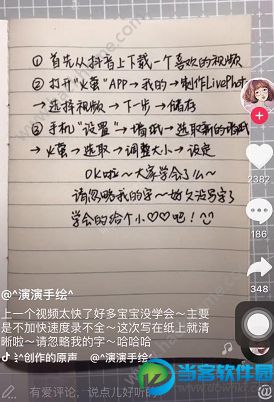 ① 首先从抖音上下载一个喜欢的视频
② 打开"火萤"APP→我的→制作LivePhot
→选择视频→下一步→储存
③ 手机"设置"→墙纸→选取新的墙纸
→火萤→选取→调整大小→设定
OK啦~大家学会了么~
请忽略我的字~好久没写字了
学会的给个小♡♡吧！
2382
186
348
@^演演手绘^
上一个视频太快了好多宝宝没学会~主要
是不加快速度录不全~这次写在纸上就清
晰啦~请忽略我的字~哈哈哈
^创作的原声 @^演演手绘^
有爱评论，说点儿好听的
当客软件园